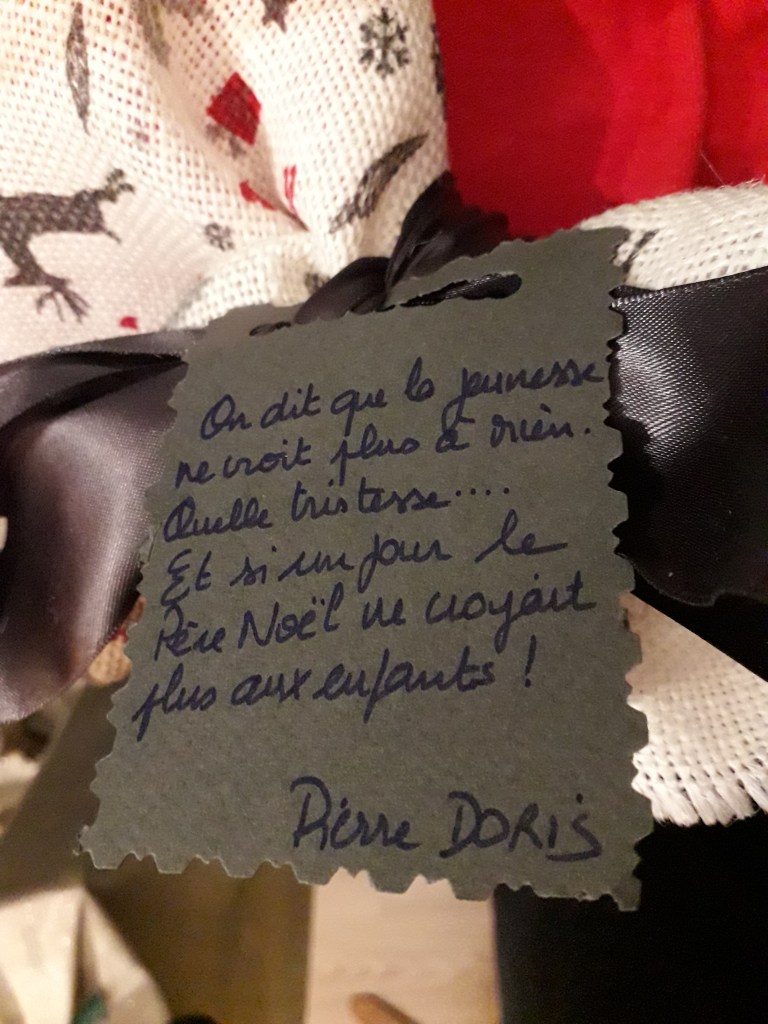 On dit que la jeunesse
ne croit plus à rien.
Quelle tristesse....
Et si un jour le
Père Noël ne croyait
plus aux enfants !
Pierre DORIS